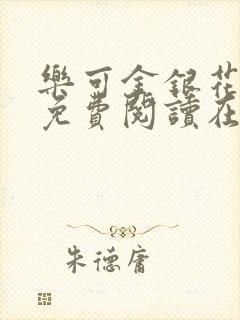 樂可金銀花
免費閱讀在
朱德庸